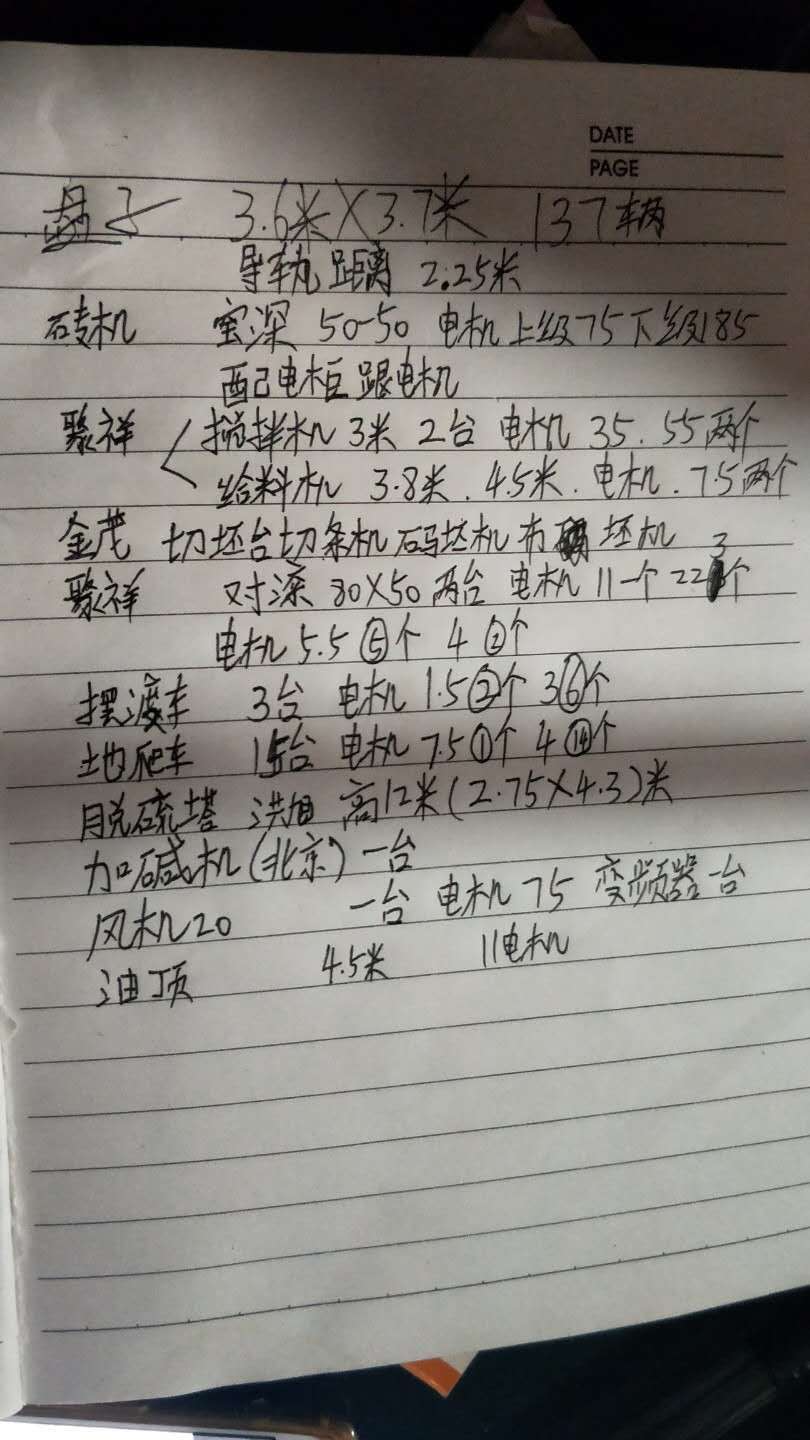 DATE
PAGE
盘子 3.6米×3.7米 137辆
导轨距离 2.25米
砖机 宝深 50-50 电机上级75下级185
配电柜跟电机
聚祥 搅拌机 3米 2台 电机 35.55两个
给料机 3.8米.4.5米.电机.7.5两个
金茂 切坯台切条机码坯机布坯机
聚祥 对滚 80×50两台 电机 11一个 22 3个
电机 5.5⑤个 4②个
摆渡车 3台 电机 1.5②个 3⑥个
土地爬车 15台 电机 7.5①个 4⑭个
脱硫塔 高12米(2.75×4.3)米
加碱机(北京)一台
风机20 一台 电机 75 变频器一台
油顶 4.5米 11电机